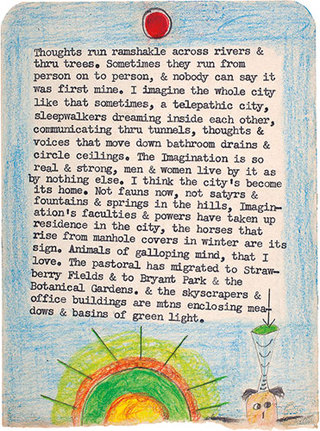 Thoughts run ramshakle across rivers &
thru trees. Sometimes they run from
person on to person, & nobody can say it
was first mine. I imagine the whole city
like that sometimes, a telepathic city,
sleepwalkers dreaming inside each other,
communicating thru tunnels, thoughts &
voices that move down bathroom drains &
circle ceilings. The Imagination is so
real & strong, men & women live by it as
by nothing else. I think the city's become
its home. Not fauns now, not satyrs &
fountains & springs in the hills, Imagin-
ation's faculties & powers have taken up
residence in the city, the horses that
rise from manhole covers in winter are its
sign. Animals of galloping mind, that I
love. The pastoral has migrated to Straw-
berry Fields & to Bryant Park & the
Botanical Gardens. & the skyscrapers &
office buildings are mtns enclosing mea-
dows & basins of green light.